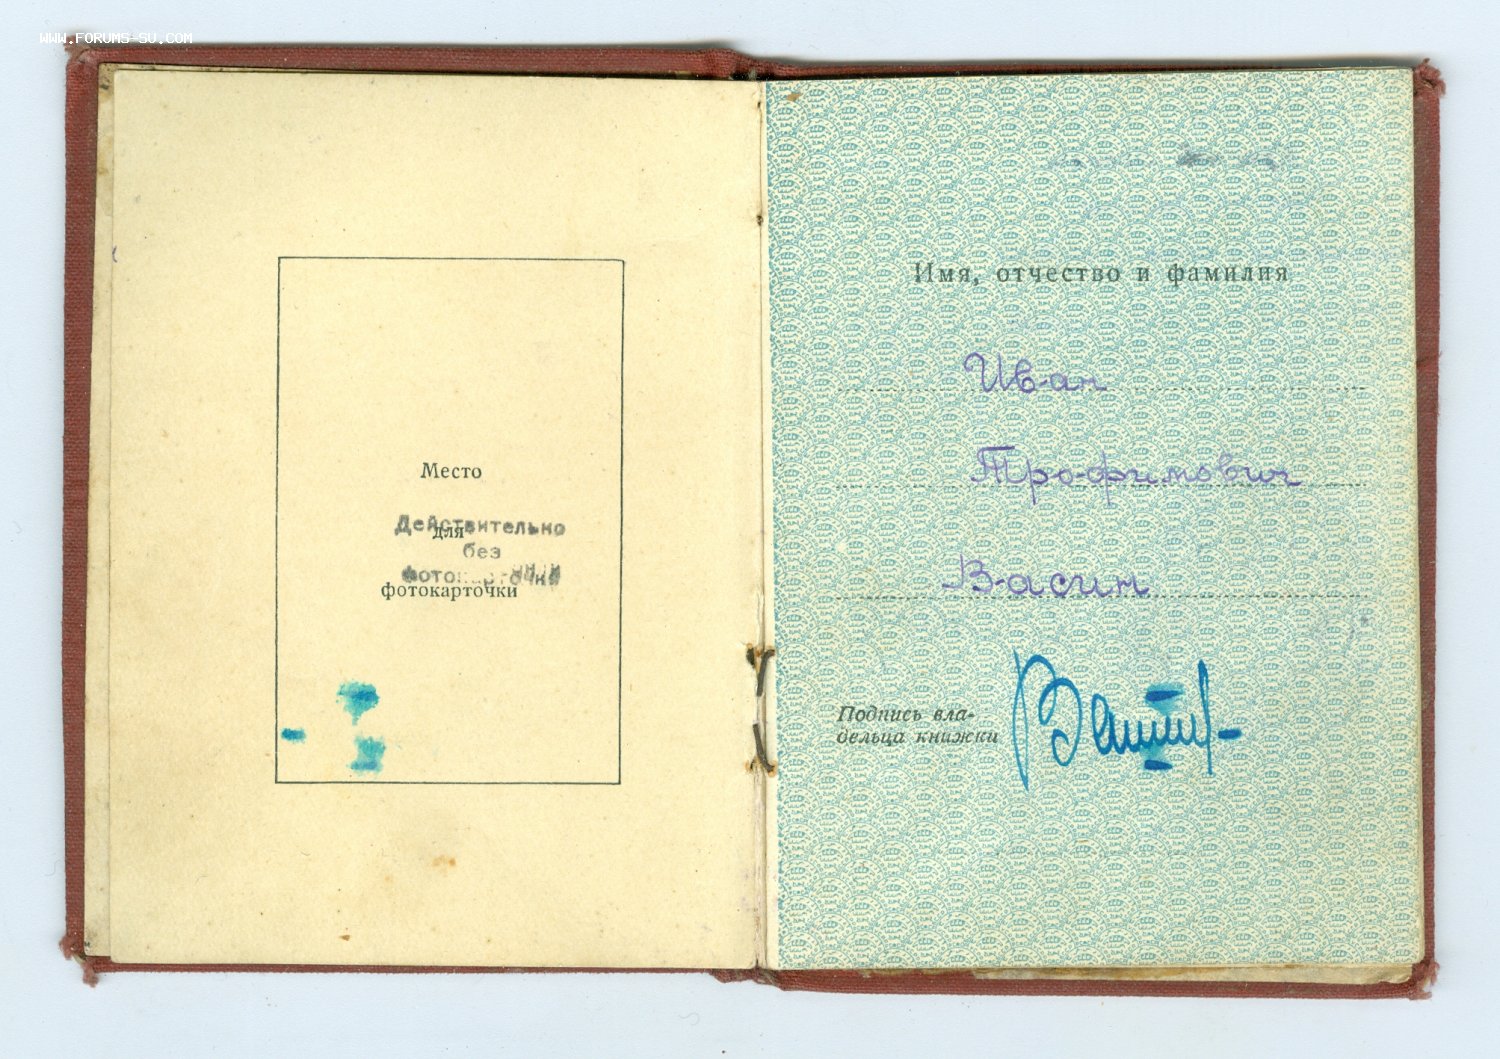 WWW.FORUMS-SU.COM
Место
для
фотокарточки
Действительно
без
фотокарточки
Имя, отчество и фамилия
Иван
Трофимович
Васин
Подпись вла-
дельца книжки